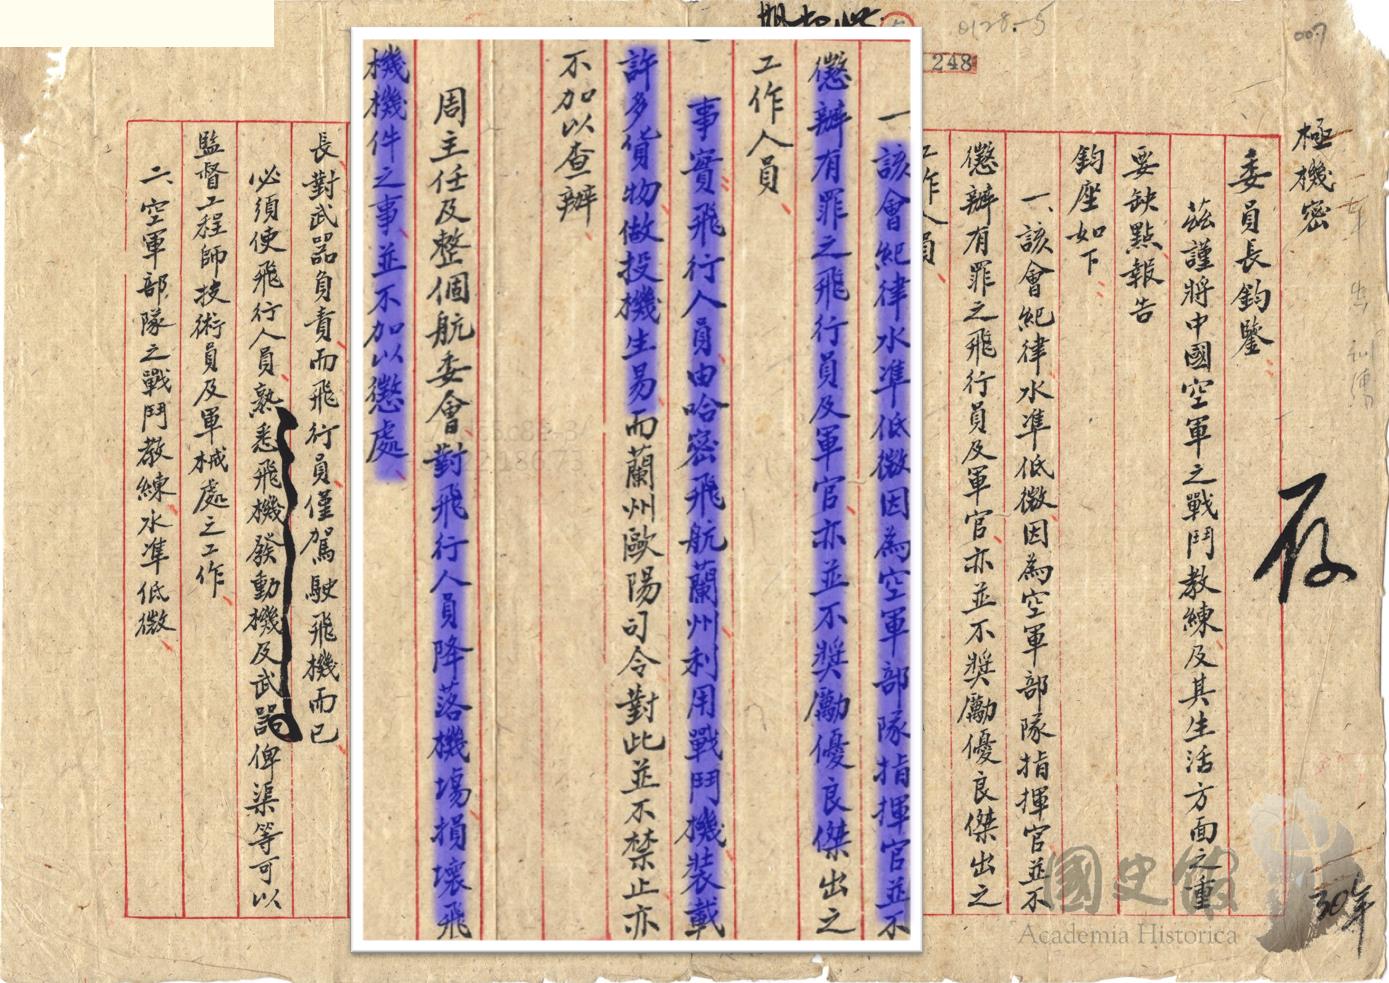 0128-5
007
248
極機密
委員長鈞鑒
茲謹將中國空軍之戰鬥教練及其生活方面之重
要缺點報告
鈞座如下
一、該會紀律水準低微因為空軍部隊指揮官並不
懲辦有罪之飛行員及軍官亦並不奬勵優良傑出之
工作人員
存
30年
一該會紀律水準低微因為空軍部隊指揮官並不
懲辦有罪之飛行員及軍官亦並不奬勵優良傑出之
工作人員
事實飛行人員由哈密飛航蘭州利用戰鬥機裝載
許多貨物做投機生易而蘭州歐陽司令對此並不禁止亦
不加以查辦
周主任及整個航委會對飛行人員降落機場損壞飛
機機件之事並不加以懲處
長對武器負責而飛行員僅駕駛飛機而已
必須使飛行人員熟悉飛機發動機及武器俾渠等可以
監督工程師技術員及軍械處之工作
二、空軍部隊之戰鬥教練水準低微
國史館
Academia Historica